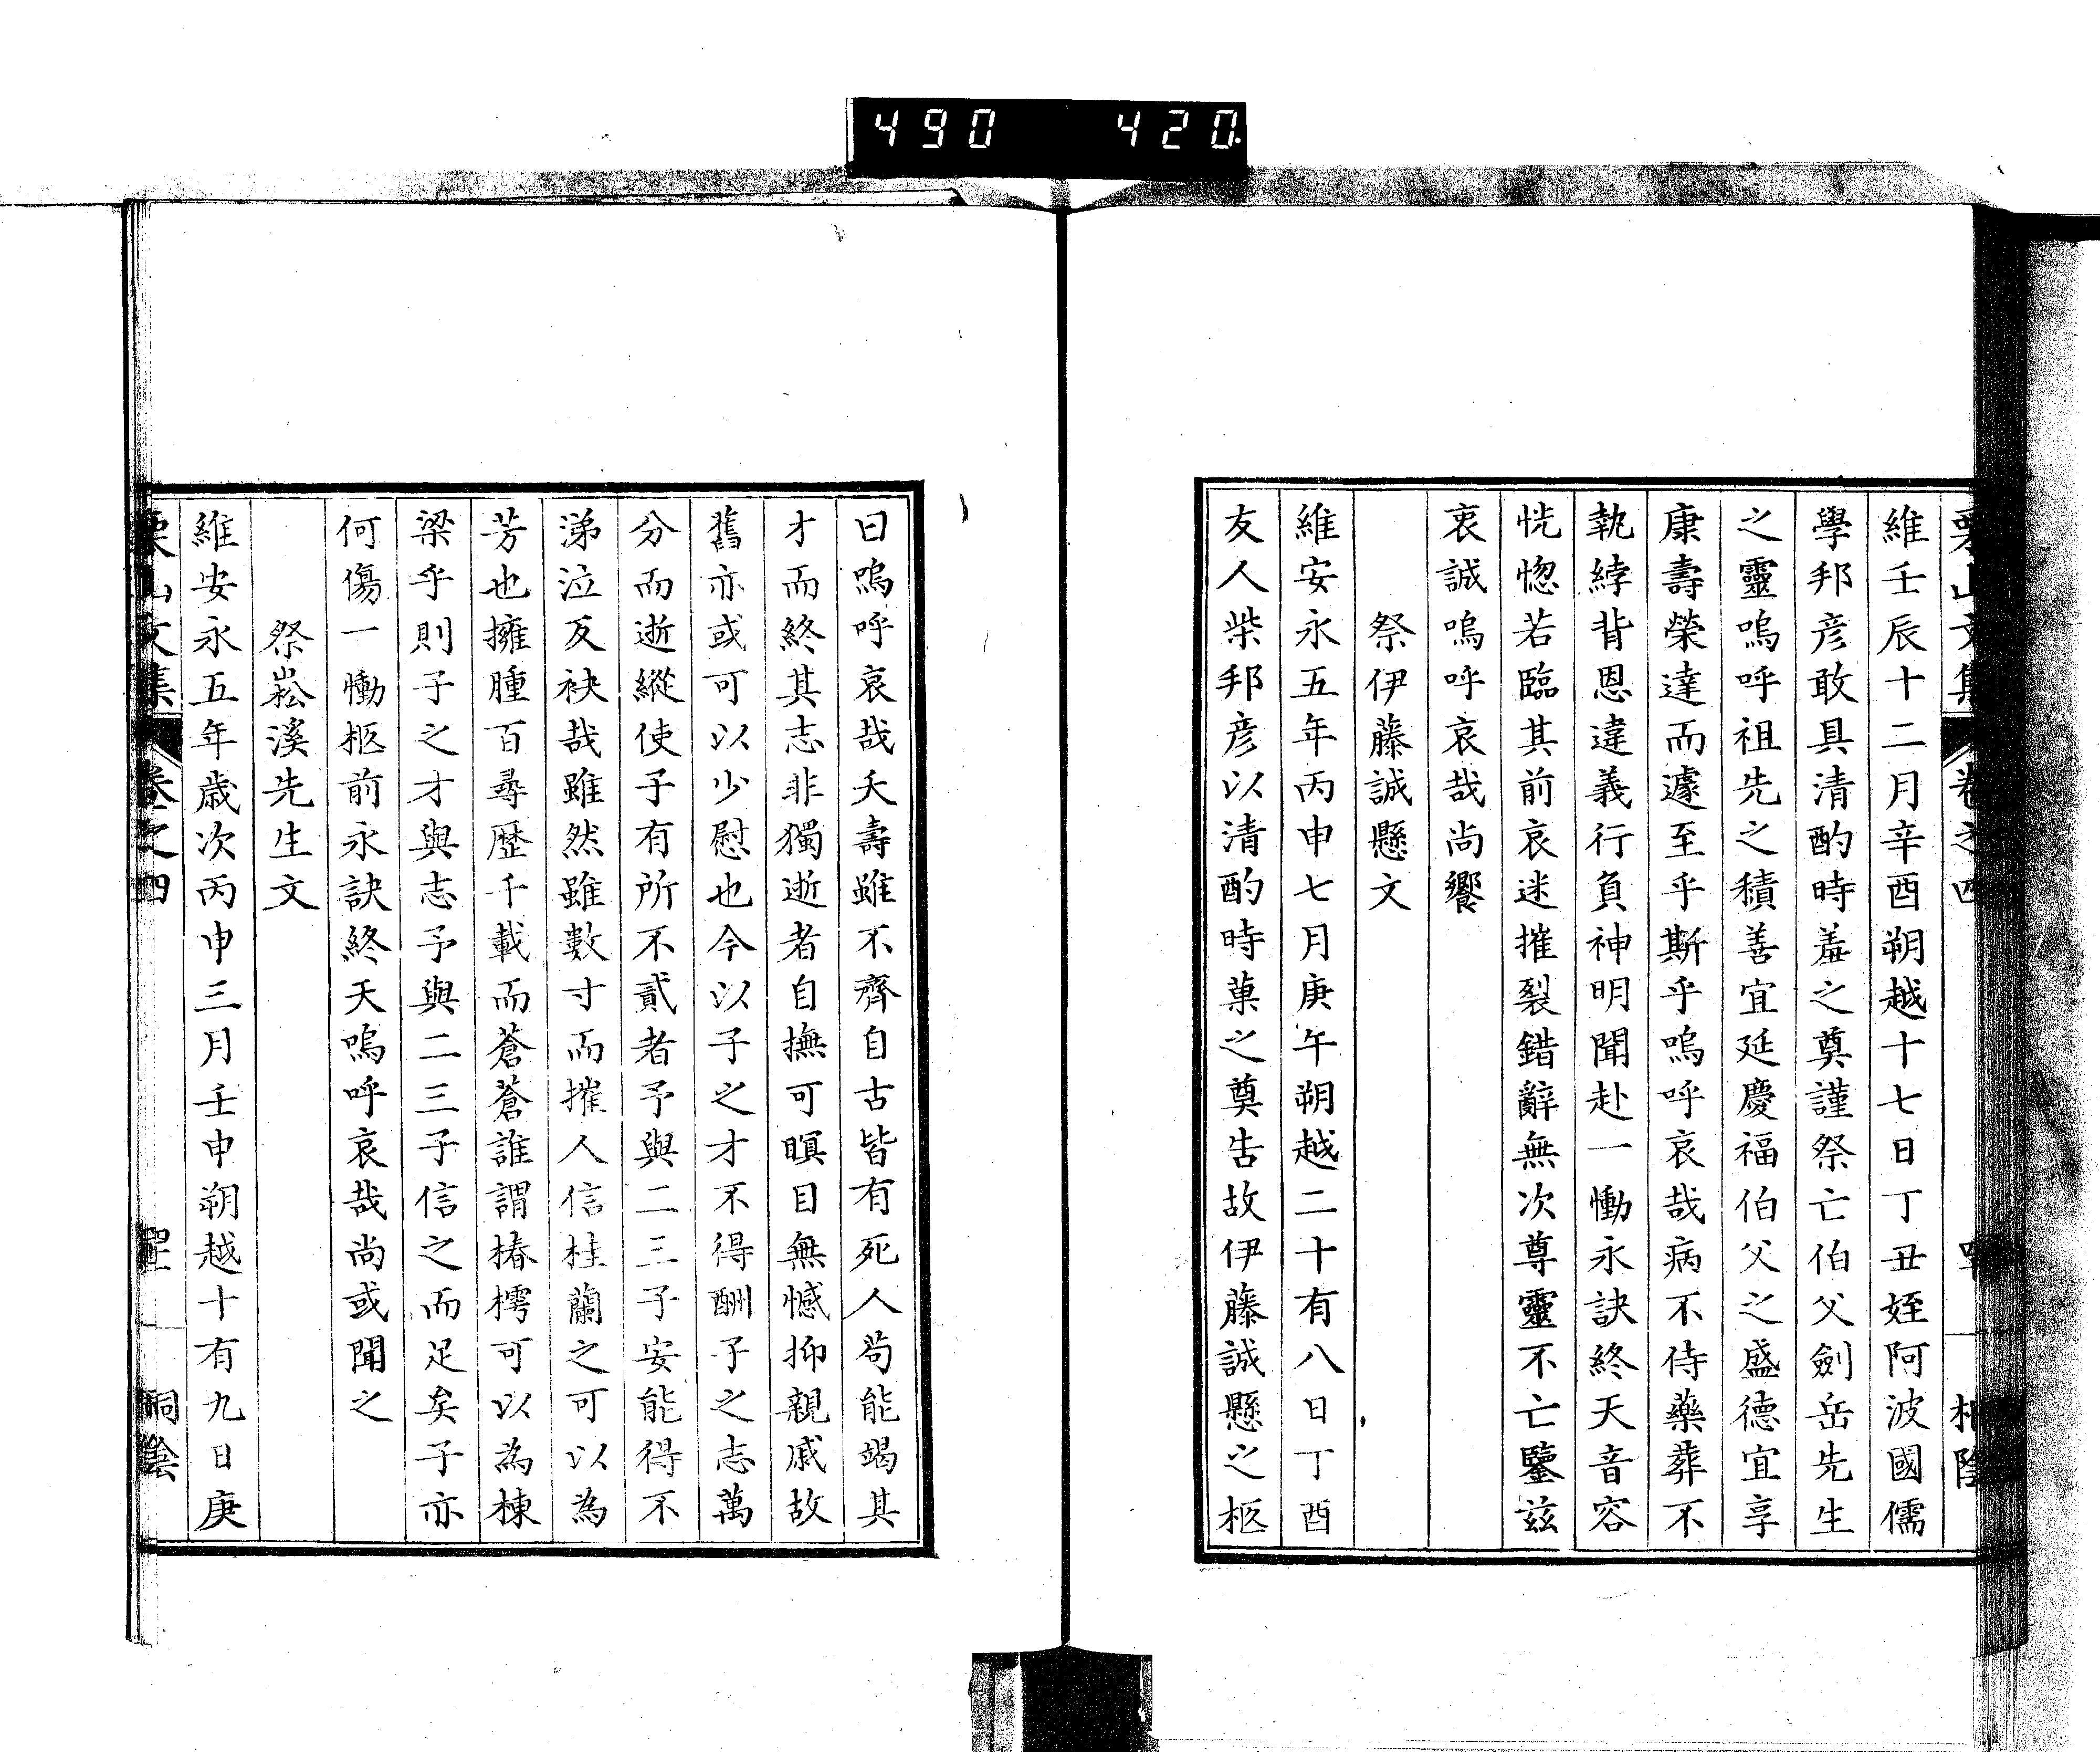 490 420
維壬辰十二月辛酉朔越十七日丁丑姪阿波國儒
學邦彦敢具清酌時羞之奠謹祭亡伯父劍岳先生
之靈嗚呼祖先之積善宜延慶福伯父之盛德宜享
康壽榮達而遽至乎斯乎嗚呼哀哉病不待藥葬不
執綍背恩違義行負神明聞赴一慟永訣終天音容
恍惚若臨其前哀迷摧裂錯辭無次尊靈不亡鑒茲
衷誠嗚呼哀哉尚饗
祭伊藤誠懸文
維安永五年丙申七月庚午朔越二十有八日丁酉
友人柴邦彦以清酌時菓之奠告故伊藤誠懸之柩
曰嗚呼哀哉夭壽雖不齊自古皆有死人苟能竭其
才而終其志非獨逝者自撫可瞑目無憾抑親戚故
舊亦或可以少慰也今以子之才不得酬子之志萬
分而逝縱使子有所不貳者予與二三子安能得不
涕泣反袂哉雖然雖數寸而摧人信桂蘭之可以為
芳也擁腫百尋歷千載而蒼蒼誰謂椿樗可以為棟
梁乎則子之才與志予與二三子信之而足矣子亦
何傷一慟柩前永訣終天嗚呼哀哉尚或聞之
祭崧溪先生文
維安永五年歲次丙申三月壬申朔越十有九日庚
栗山文集 卷之四